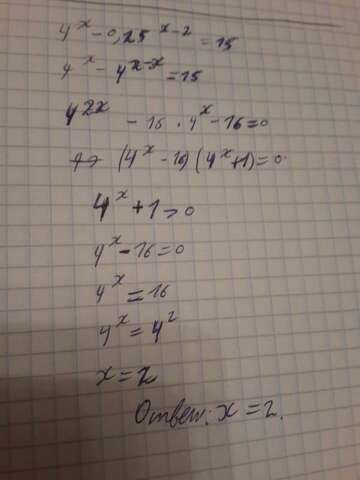 4^x - 0,25^{x-2} = 15
4^x - 4^{x-x} = 15
4^{2x} - 16 · 4^x - 16 = 0
⇔ (4^x - 16)(4^x + 1) = 0
4^x + 1 > 0
4^x - 16 = 0
4^x = 16
4^x = 4^2
x = 2
Ответ: x = 2.